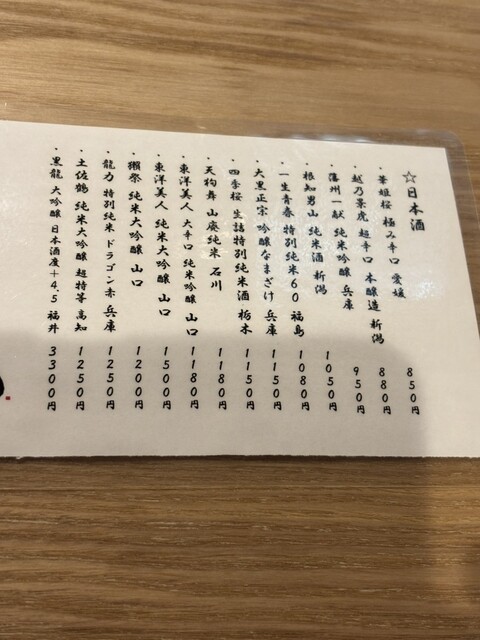 ☆日本酒
・華姫桜 極み辛口 愛媛 850円
・越乃景虎 超辛口 本醸造 新潟 880円
・藩州一献 純米吟醸 兵庫 950円
・根知男山 純米酒 新潟 1050円
・一生青春 特別純米60 福島 1080円
・大黒正宗 吟醸なまざけ 兵庫 1150円
・四季桜 生詰特別純米酒 栃木 1150円
・天狗舞 山廃純米 石川 1180円
・東洋美人 大辛口 純米吟醸 山口 1180円
・東洋美人 純米大吟醸 山口 1500円
・獺祭 純米大吟醸 山口 1200円
・龍力 特別純米 ドラゴン赤 兵庫 1250円
・土佐鶴 純米大吟醸 超特等 高知 1250円
・黒龍 大吟醸 日本酒度+4.5 福井 3300円